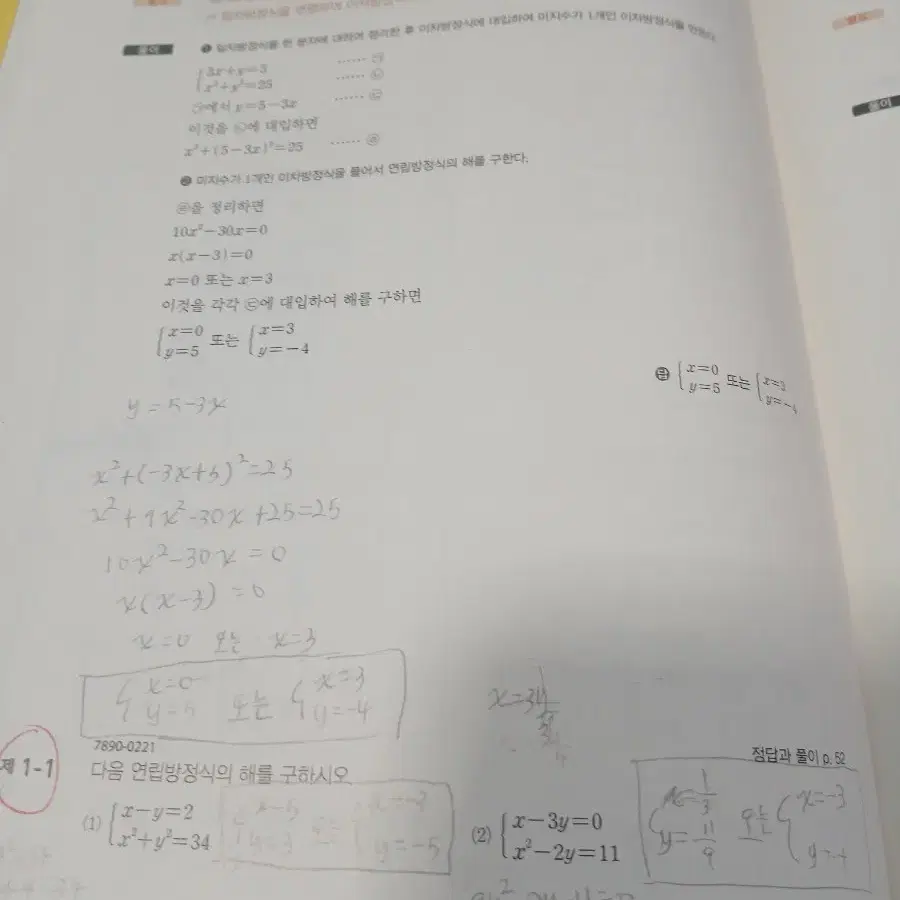 풀이
❶ 일차방정식을 한 문자에 대하여 정리한 후 이차방정식에 대입하여 미지수가 1개인 이차방정식을 만든다.
…… ㉠
x²+y²=25 …… ㉡
㉠에서 y=5-3x …… ㉢
이것을 ㉡에 대입하면
x²+(5-3x)²=25 …… ㉣
❷ 미지수가 1개인 이차방정식을 풀어서 연립방정식의 해를 구한다.
㉣을 정리하면
10x²-30x=0
x(x-3)=0
x=0 또는 x=3
이것을 각각 ㉢에 대입하여 해를 구하면
{x=0 y=5 또는 {x=3 y=-4
답 {x=0 y=5 또는 {x=3 y=-4
y=5-3x
x²+(-3x+5)²=25
x²+9x²-30x+25=25
10x²-30x=0
x(x-3)=0
x=0 또는 x=3
{x=0 y=5 또는 {x=3 y=-4
7890-0221
제 1-1 다음 연립방정식의 해를 구하시오
정답과 풀이 p.52
(1) {x-y=2 x²+y²=34
y=-5
(2) {x-3y=0 x²-2y=11
또는 {x=-3
풀이